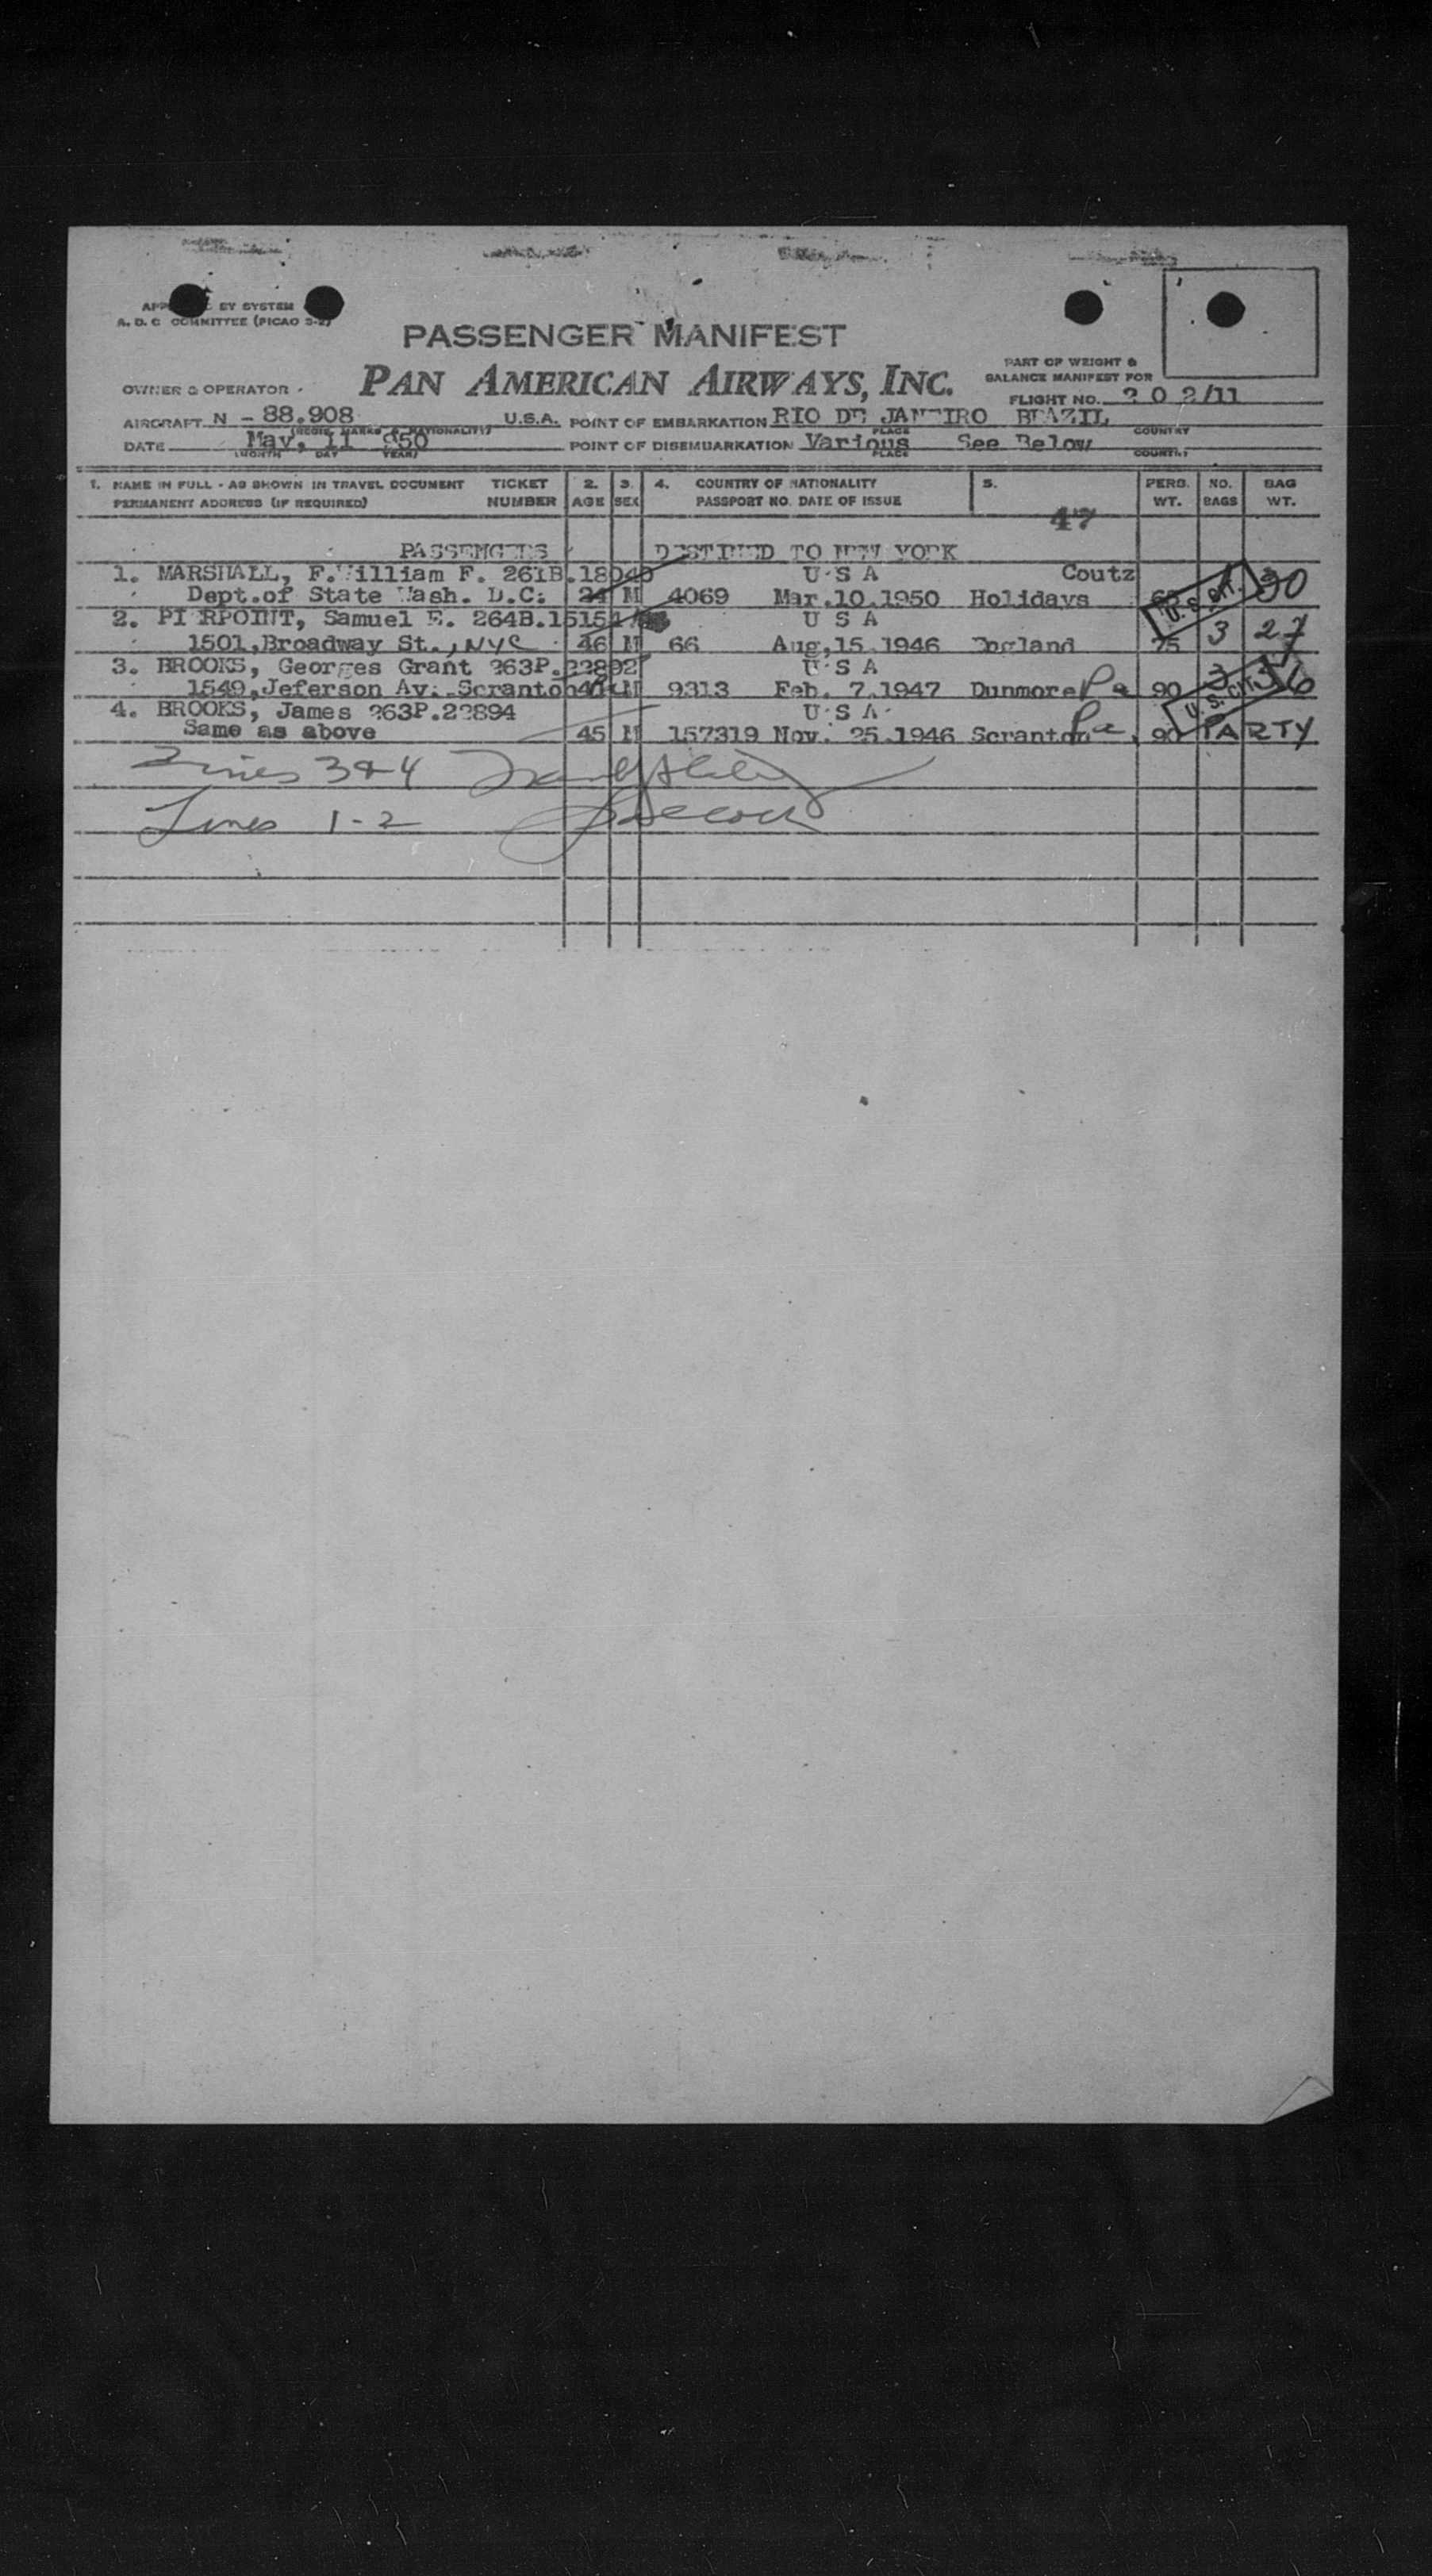 BY SYSTEM
A. D. C COMMITTEE (PICAO S-2)
PASSENGER MANIFEST
PART OF WEIGHT &
BALANCE MANIFEST FOR
OWNER & OPERATOR
PAN AMERICAN AIRWAYS, INC.
FLIGHT NO. 202/11
AIRCRAFT N - 88.908 U.S.A. POINT OF EMBARKATION RIO DE JANEIRO BRAZIL
(REGIS. MARKS & NATIONALITY) PLACE COUNTRY
DATE May, 11 950 POINT OF DISEMBARKATION Various See Below
(MONTH DAY YEAR) PLACE COUNTRY
1. NAME IN FULL - AS SHOWN IN TRAVEL DOCUMENT TICKET 2. 3. 4. COUNTRY OF NATIONALITY 5. PERS. NO. BAG
PERMANENT ADDRESS (IF REQUIRED) NUMBER AGE SEX PASSPORT NO. DATE OF ISSUE WT. BAGS WT.
47
PASSENGERS DESTINED TO NEW YORK
1. MARSHALL, F.William F. 261B.18040 U S A Coutz
Dept.of State Wash. D.C. 24 M 4069 Mar.10.1950 Holidays U.S. CIT. 30
2. PIERPOINT, Samuel E. 264B.15154 U S A
1501,Broadway St., NYC 46 M 66 Aug,15.1946 England 75 3 27
3. BROOKS, Georges Grant 263P.22892 U S A
1549,Jeferson Av. Scranton M 9313 Feb. 7.1947 Dunmore Pa 90 3 U.S. CIT.
4. BROOKS, James 263P.22894 U S A
Same as above 45 M 157319 Nov. 25.1946 Scranton Pa. 90 PARTY
Lines 3&4
Lines 1-2